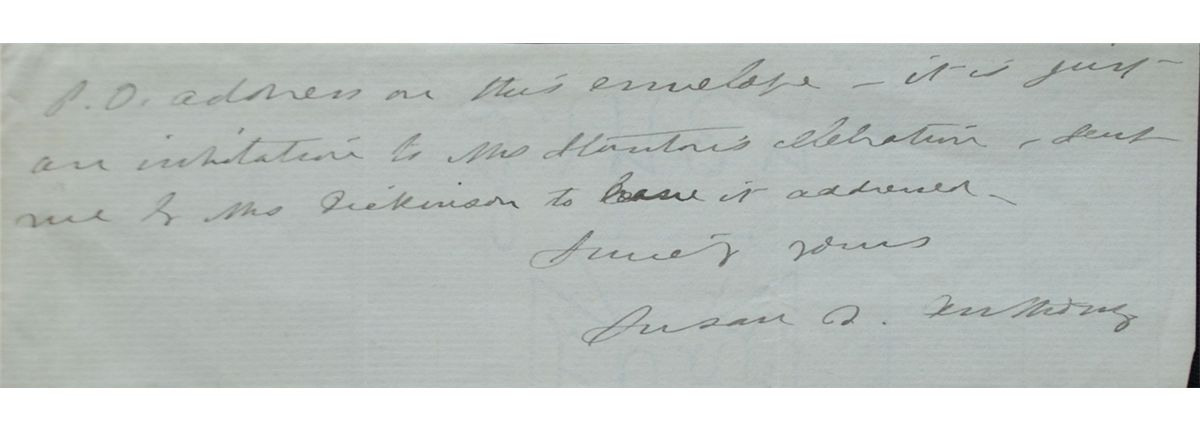 P. O. address on this envelope – it is just
an invitation to Mrs Stanton's celebration – sent
me by Mrs Dickinson to have it addressed –
Sincely yours
Susan B. Anthony